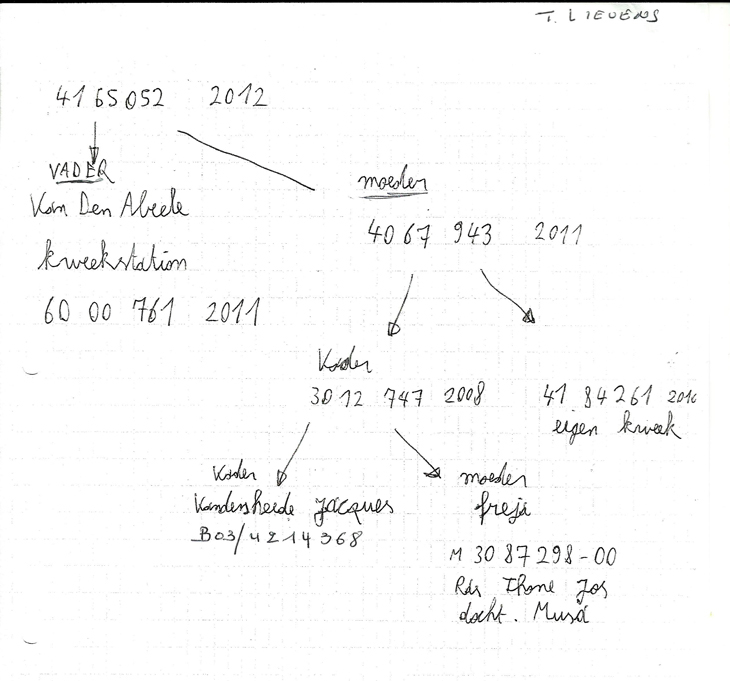 T. LIEVENS
4165052 2012
VADER
Van Den Abeele
kweekstation
60 00 761 2011
moeder
4067 943 2011
Vader
3012 747 2008
41 84261 2010
eigen kweek
Vader
Vandersheide Jacques
B03/4214368
moeder
freja
M 30 87298-00
Rds Thone Jos
docht. Musá